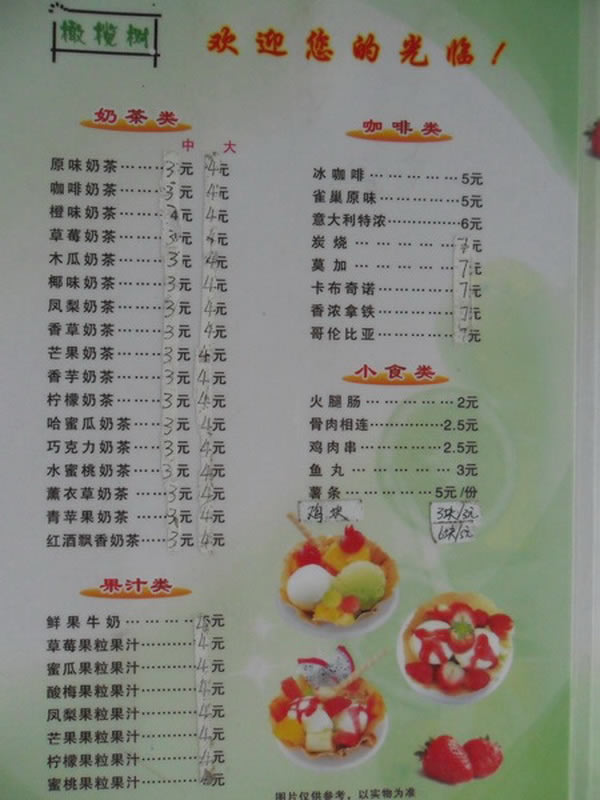 橄榄树
欢迎您的光临！
奶茶类
中 大
原味奶茶……3元 4元
咖啡奶茶……3元 4元
橙味奶茶……4元
草莓奶茶……3元
木瓜奶茶……3元 4元
椰味奶茶……3元 4元
凤梨奶茶……3元 4元
香草奶茶……3元 4元
芒果奶茶……3元 4元
香芋奶茶……3元 4元
柠檬奶茶……3元 4元
哈蜜瓜奶茶……3元 4元
巧克力奶茶……3元 4元
水蜜桃奶茶……3元 4元
薰衣草奶茶……3元 4元
青苹果奶茶……3元 4元
红酒飘香奶茶……3元 4元
果汁类
鲜果牛奶…………元
草莓果粒果汁………4元
蜜瓜果粒果汁………4元
酸梅果粒果汁………4元
凤梨果粒果汁………4元
芒果果粒果汁………4元
柠檬果粒果汁………4元
蜜桃果粒果汁………元
咖啡类
冰咖啡……………5元
雀巢原味…………5元
意大利特浓………6元
炭烧……………7元
莫加……………7元
卡布奇诺…………7元
香浓拿铁…………7元
哥伦比亚…………7元
小食类
火腿肠……………2元
骨肉相连…………2.5元
鸡肉串……………2.5元
鱼丸……………3元
薯条……………5元/份
鸡块 3块/3元
6块/5元
图片仅供参考，以实物为准